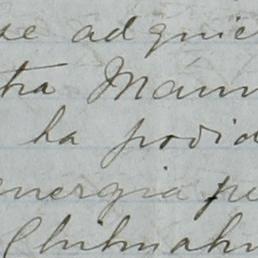 se adquie
tra Mam
ha podid
energia pe
Chihuahu